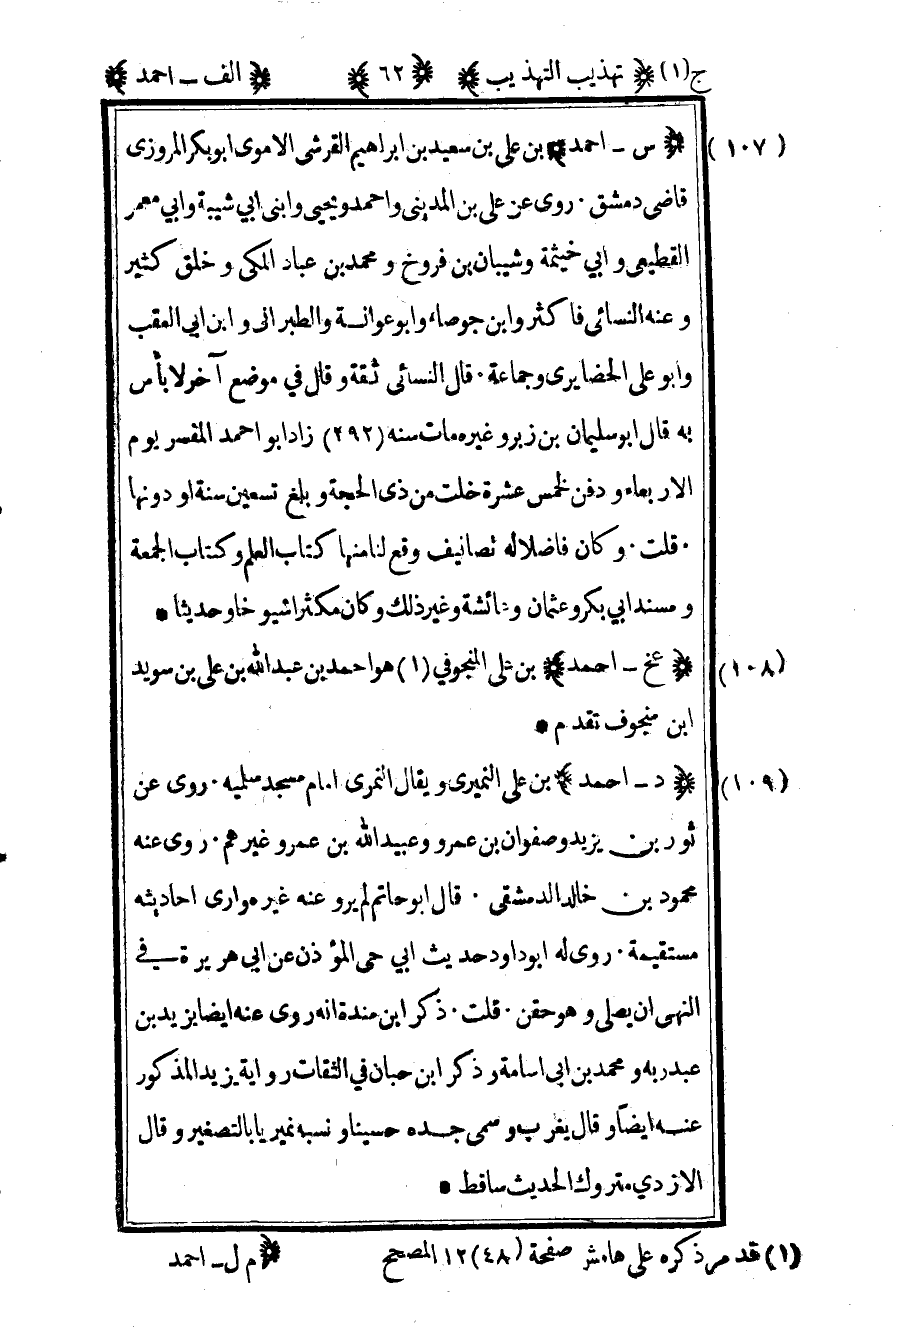 ج(١) ﴿ تهذيب التهذيب ﴾ ﴿ ٦٢ ﴾ ﴿ الف ـ احمد ﴾
(١٠٧) ﴿ س ـ احمد ﴾ بن علي بن سعيد بن ابراهيم القرشى الاموى ابو بكر المروزى
قاضى دمشق ٠ روى عن على بن المدينى واحمد ويحيى وابنى ابي شيبة وابي معمر
القطيعى و ابي خيثمة وشيبان بن فروخ و محمد بن عباد المكى و خلق كثير
و عنه النسائى فاكثر وابن جوصاء وابو عوانــة والطبرانى و ابن ابى العقب
وابو على الحضايرى وجماعة ٠ قال النسائى ثقة و قال في موضع آخر لا بأس
به قال ابو سليمان بن زبر و غيره مات سنه (٢٩٢) زاد ابو احمد المفسر يوم
الاربعاء و دفن لخمس عشرة خلت من ذى الحجة و بلغ تسعين سنة او دونها
٠ قلت ٠ و كان فاضلا له تصانيف وقع لنا منها كتاب العلم و كتاب الجمعة
و مسند ابي بكر و عثمان و عائشة و غير ذلك و كان مكثرا شيوخا و حديثا •
(١٠٨) ﴿ عخ ـ احمد ﴾ بن على المنجوفي (١) هو احمد بن عبد الله بن على بن سويد
ابن منجوف تقدم •
(١٠٩) ﴿ د ـ احمد ﴾ بن علي النميرى و يقال النمرى امام مسجد سلميه ٠ روى عن
ثور بن يزيد و صفوان بن عمرو و عبيد الله بن عمرو غيرهم ٠ روى عنه
محمود بن خالد الدمشقى ٠ قال ابو حاتم لم يرو عنه غيره وارى احاديثه
مستقيمة ٠ روى له ابو داود حديث ابي حى المؤذن عن ابي هريرة فى
النهى ان يصلى و هو حقن ٠ قلت ٠ ذكر ابن مندة انه روى عنه ايضا يزيد بن
عبد ربه و محمد بن ابى اسامة و ذكر ابن حبان في الثقات رواية يزيد المذكور
عنــه ايضاً و قال يغرب و سمى جــده حسينا و نسبه نميريا بالتصغير و قال
الازدي متروك الحديث ساقط •
(١) قد مر ذكره على هامش صفحة (٤٨) ١٢ المصحح ﴿ م ل ـ احمد